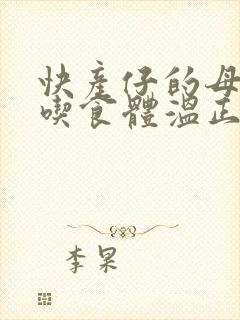 快產仔的母
喫食體溫正
李杲